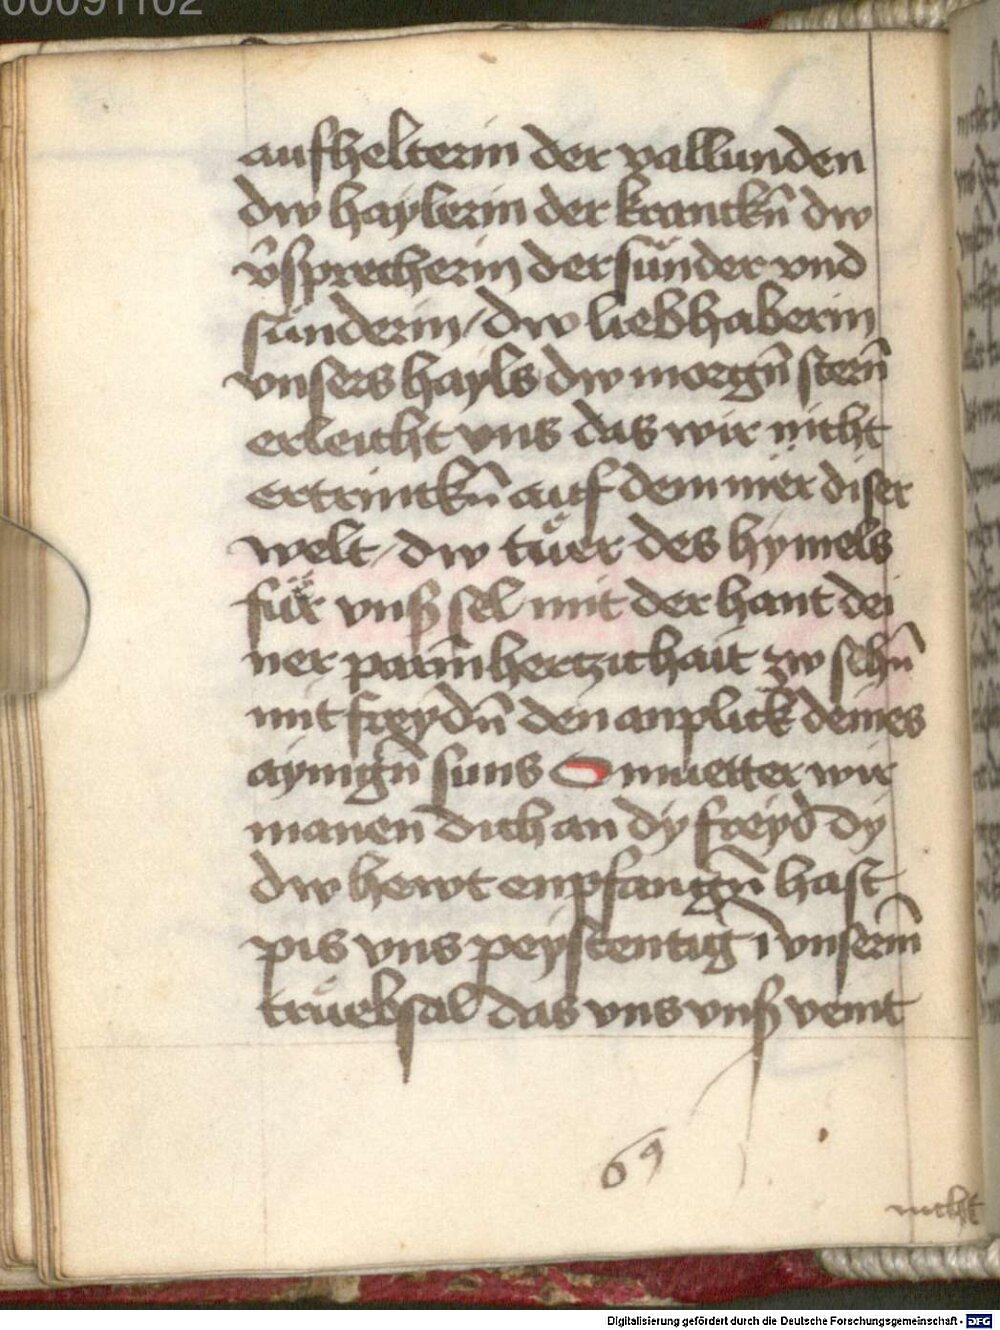 00091102
aufhelterin der vallunden
dw haylerin der kranckn̄ dw
v̄sprecherin der sünder vnd
sünderin / dw liebhaberin
vnsers hayls dw morgn̄ stern̄
erleicht vns das wir nicht
ertrinckn̄ auf dem mer diser
welt / dw tuͤer des hymels
für vnß sel mit der hant dei
ner parmhertzichait zw sehn̄
mit freydn̄ den anplick deines
aynign̄ suns O muetter wir
manen dich an dy freyd dy
dw hewt enpfangn̄ hast
pis vns peystentig ī vnserm̄
truebsal das vns vnß veint
69
nicht
Digitalisierung gefördert durch die Deutsche Forschungsgemeinschaft - DFG